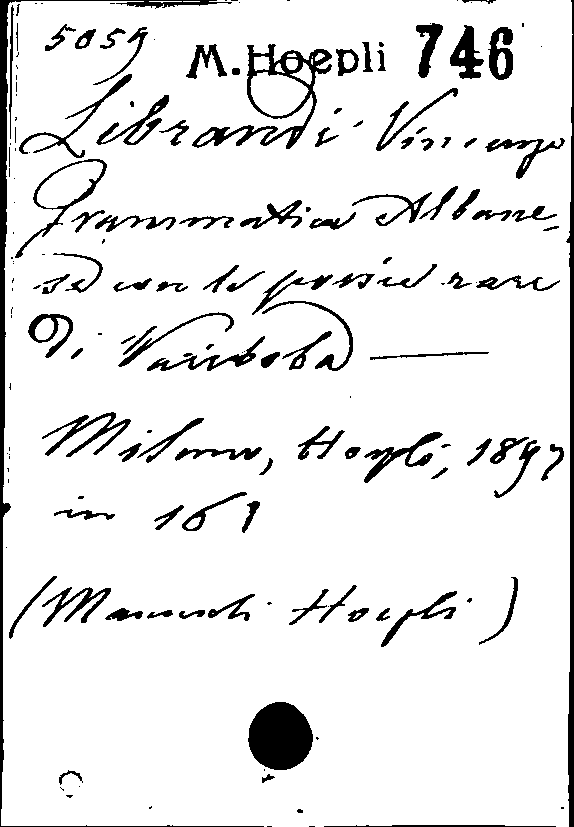 5059
M. Hoepli 746
Librandi Vincenzo
Grammatica Albane-
se con le poesie rare
Di Variboba —
Milano, Hoepli, 1897
in 16°
(Manuali Hoepli)